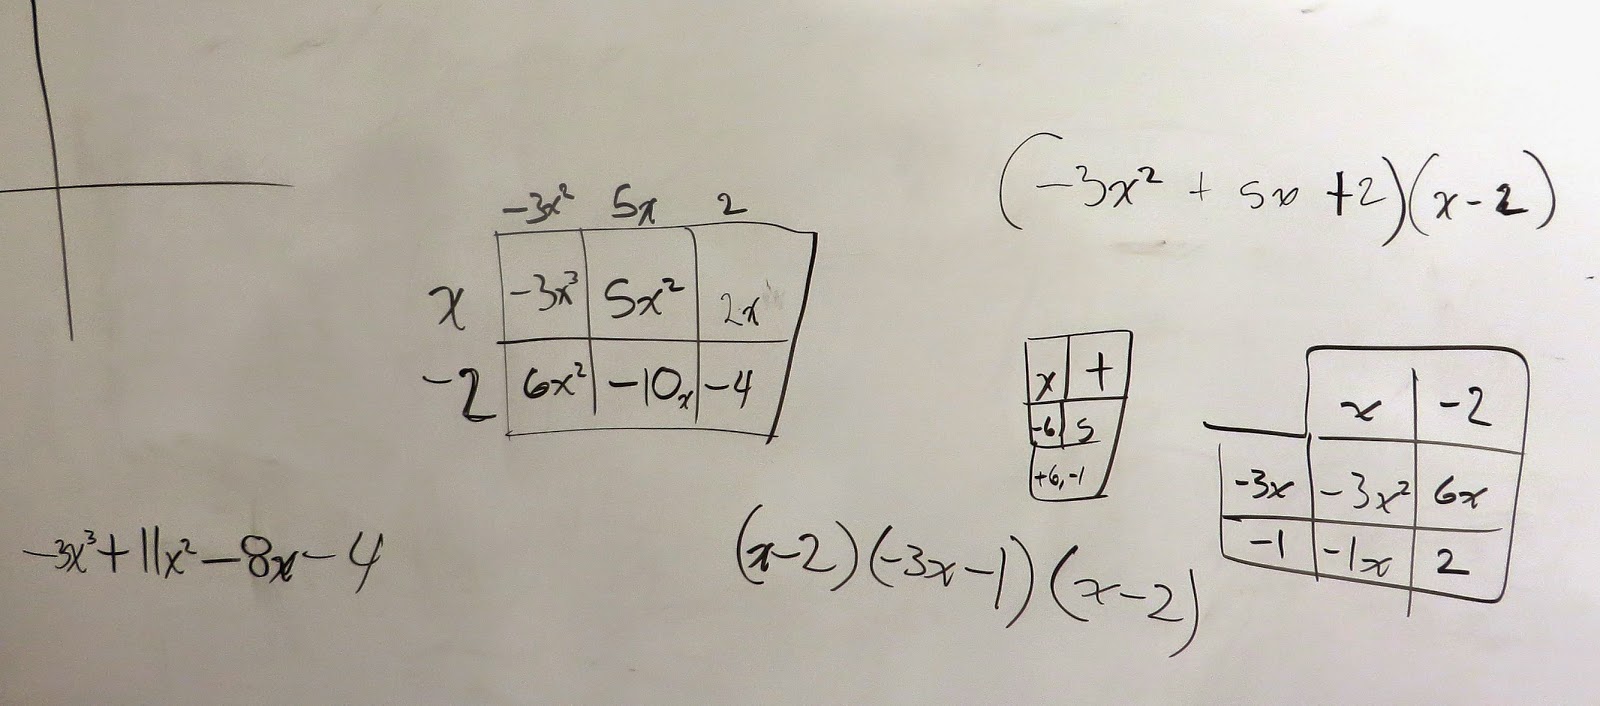 (-3x² + 5x +2)(x-2)
-3x² 5x 2
x -3x³ 5x² 2x
-2 6x² -10x -4
x +
-6 5
+6, -1
x -2
-3x -3x² 6x
-1 -1x 2
-3x³ + 11x² - 8x - 4
(x-2)(-3x-1)(x-2)